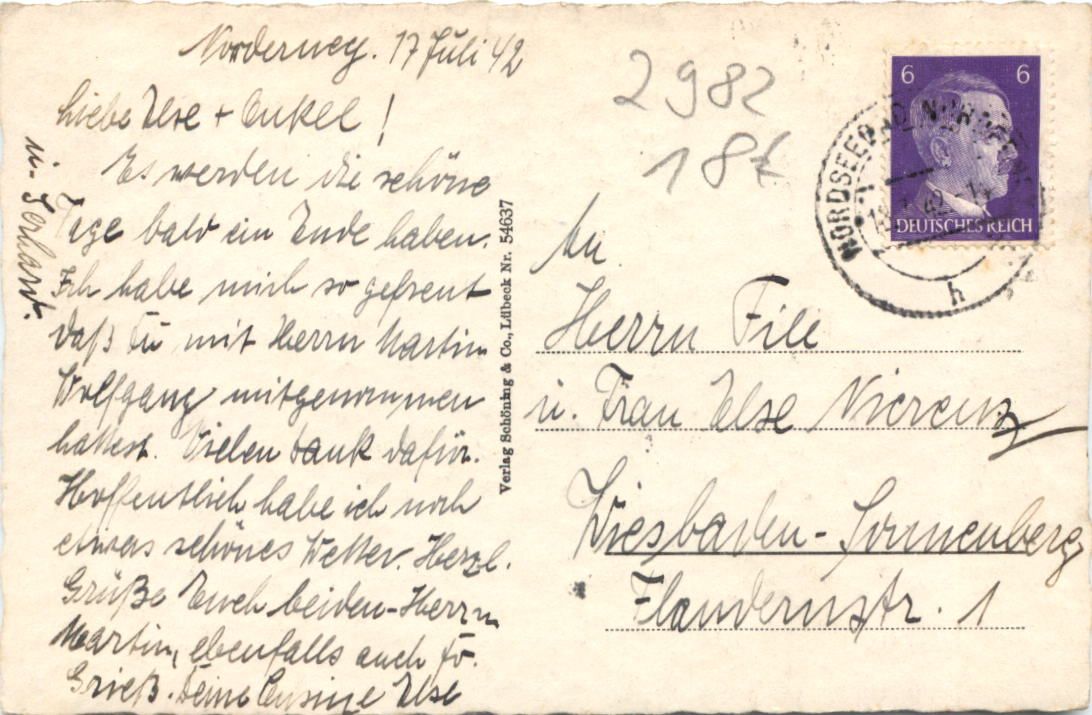 Norderney. 17 Juli 42
Liebe Else + Onkel!
Es werden die schöne
Tage bald ein Ende haben.
Ich habe mich so gefreut
daß Du mit Herrn Martin
Wolfgang mitgenommen
hattest. Vielen Dank dafür.
Hoffentlich habe ich noch
etwas schönes Wetter. Herzl.
Grüße Euch beiden - Herrn
Martin, ebenfalls auch
Grieß. Deine Cusine Else
u. Gerhard.
Verlag Schöning & Co., Lübeck Nr. 54637
2982
18
6 6
DEUTSCHES REICH
NORDSEEBAD NORDERNEY
h
An
Herrn
u. Frau Else
Wiesbaden-Sonnenberg
Flandernstr. 1